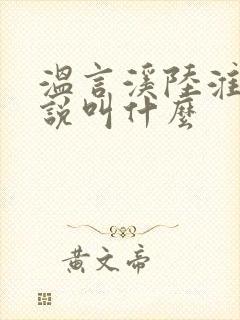 溫言溪陸淮
說叫什麼
黃文帝